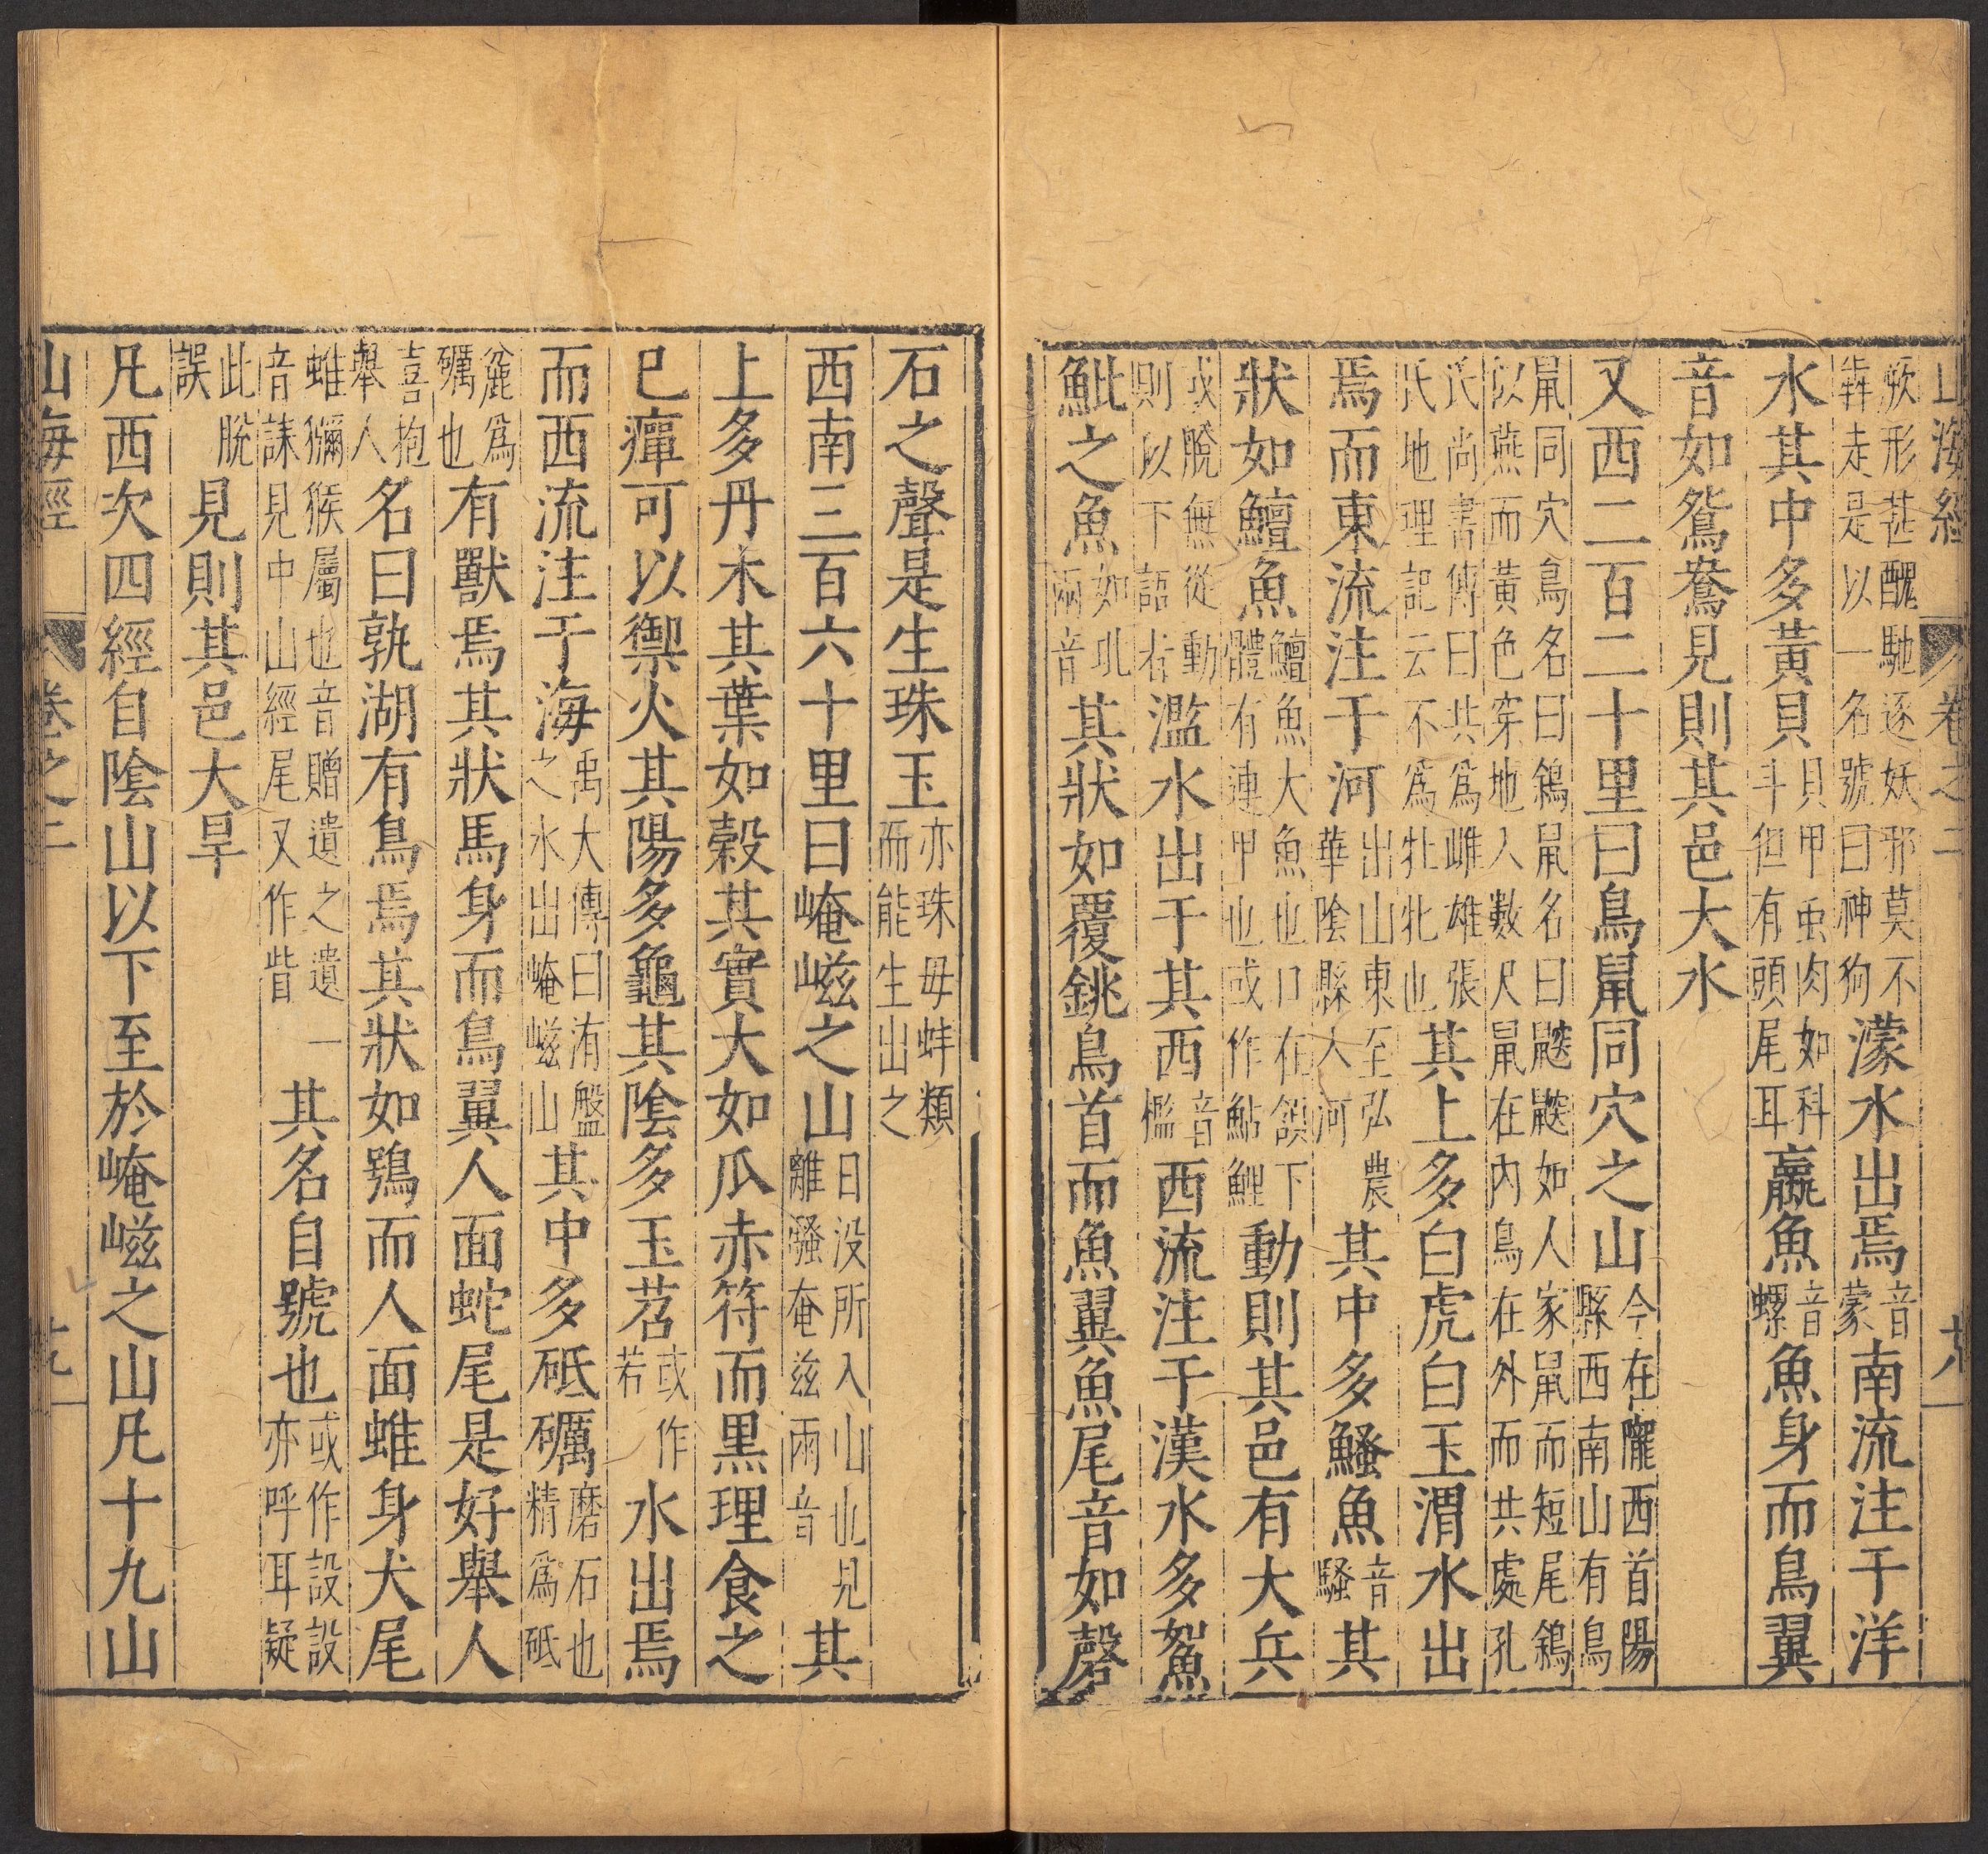 山海經 卷之二 十八
厥形甚醜馳逐妖邪莫不
犇走是以一名號曰神狗
濛水出焉音蒙南流注于洋
水其中多黃貝貝甲虫肉如科斗但有頭尾耳蠃魚音螺魚身而鳥翼
音如鴛鴦見則其邑大水
又西二百二十里曰鳥鼠同穴之山今在隴西首陽縣西南山有鳥
鼠同穴鳥名曰鵌鼠名曰鼵鼵如人家鼠而短尾鵌
似燕而黃色穿地入數尺鼠在內鳥在外而共處孔
氏尚書傳曰共為雌雄張氏地理記云不為牡牝也其上多白虎白玉渭水出
焉而東流注于河出山東至弘農華陰縣入河其中多鰠魚音騷其
狀如鱣魚鱣魚大魚也口在頷下體有連甲也或作鮎鯉動則其邑有大兵
或脫無從動則以下語者濫水出于其西音檻西流注于漢水多鴽
魮之魚如玭兩音其狀如覆銚鳥首而魚翼魚尾音如磬
石之聲是生珠玉亦珠母蚌類而能生出之
西南三百六十里曰崦嵫之山日没所入山也見離騷奄兹兩音其
上多丹木其葉如榖其實大如瓜赤符而黑理食之
已癉可以禦火其陽多龜其陰多玉苕或作若水出焉
而西流注于海禹大傳曰洧盤之水出崦嵫山其中多砥礪磨石也精為砥
麁為礪也有獸焉其狀馬身而鳥翼人面蛇尾是好舉人
喜抱舉人名曰孰湖有鳥焉其狀如鴞而人面蜼身犬尾
蜼獼猴屬也音贈遺之遺一音誄見中山經尾又作眥其名自號也或作設設亦呼耳疑
此脫誤見則其邑大旱
凡西次四經自陰山以下至於崦嵫之山凡十九山
山海經 卷之二 十九